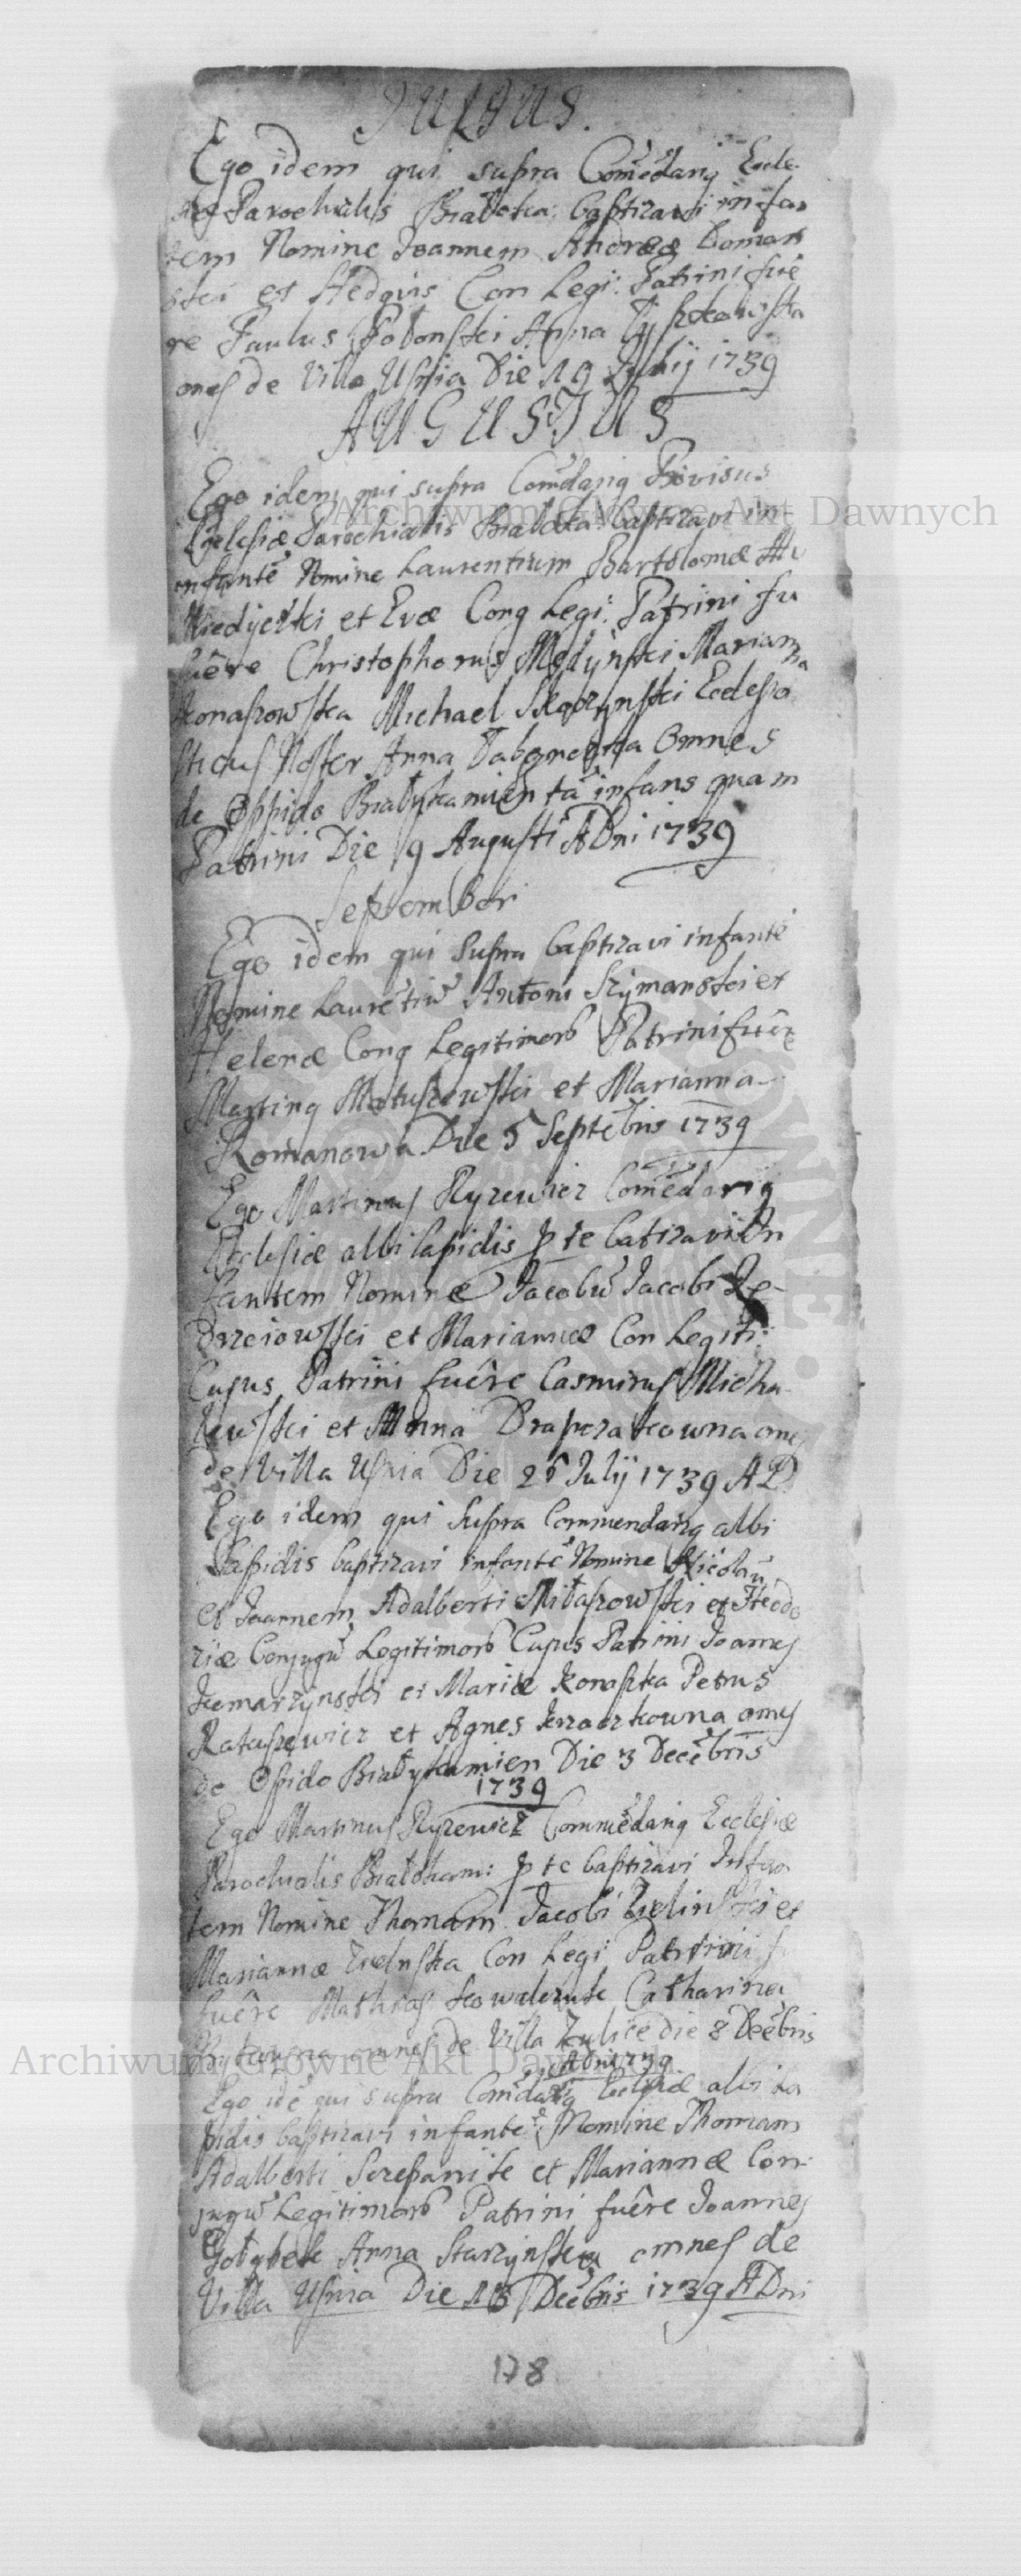 JULIUS.
Ego idem qui supra Comēdariq Eccle
siæ Parochialis Białoka: baptizavi infan
tem Nomine Joannem Andreæ Doman
ski et Hedvis Con Legi: Patrini fue
re Paulus Anna
omes de Villa Usnia Die 19 Julij 1739
AUGUSTUS
Ego idem qui supra Comēdariq Provisus
Ecclesiæ Parochialis Białoka: baptizavi in
infantē Nomine Laurentium Bartolomæ
et Evæ Conq Legi: Patrini fu
fuêre Christophorus Medyński Marianna
Konaszowska Michael Ecclesia
sticus Noster Anna Omnes
de Oppido Białykamień tā infans quam
Patrini Die 9 Augusti A Dni 1739
Septembor
Ego idem qui supra baptizavi infantē
Nomine Laurētiū Antoni Szymanski et
Helenæ Conq Legitimorb Patrini fuêre
Martinq Matuszewski et Marianna
Romanowa Die 5 Septēbris 1739
Ego Martinus Ryzewicz Comēdariq
Ecclesiæ albi lapidis p te batizavi In
fantem Nomine Jacobū Jacobi Je-
drzeiowski et Mariannæ Con Legiti:
Cujus Patrini fuêre Casmirus Micha
lewski et Anna Drapczakowna omes
de Villa Usnia Die 25 Julij 1739 AD
Ego idem qui supra Commendariq albi
Lapidis baptizavi infantē Nomine Nicolaū
et Joannem Adalberti Mitaszowski et Theodo
riæ Conjugū Legitimorb Cujus Patrini Joannes
Komarzynski et Mariæ Konaszka Petrus
Ratuszewicz et Agnes omes
de Opido Białykamien Die 3 Decēbris
1739
Ego Martinus Ryzewicz Commēdariq Ecclesiæ
Parochialis Białokam: p te baptizavi Infan
tem Nomine Thomam Jacobi Zielinski et
Mariannæ Zielnska Con Legi Patrini
fuêre Mathias Kowalczuk Catharina
omnes de Villa Zulice die 8 Decēbris
A Dni 1739
Ego idē qui supra Comēdariq Ecclesiæ albi La
pidis baptizavi infantē Nomine Thomam
Adalberti Sczepanik et Mariannæ Con
jugū Legitimorb Patrini fuêre Joannes
Gołąbek Anna Starzynska omnes de
Villa Usnia Die 18 Decēbris 1739 A Dni
178
Archiwum Główne Akt Dawnych
Archiwum Główne Akt Dawnych